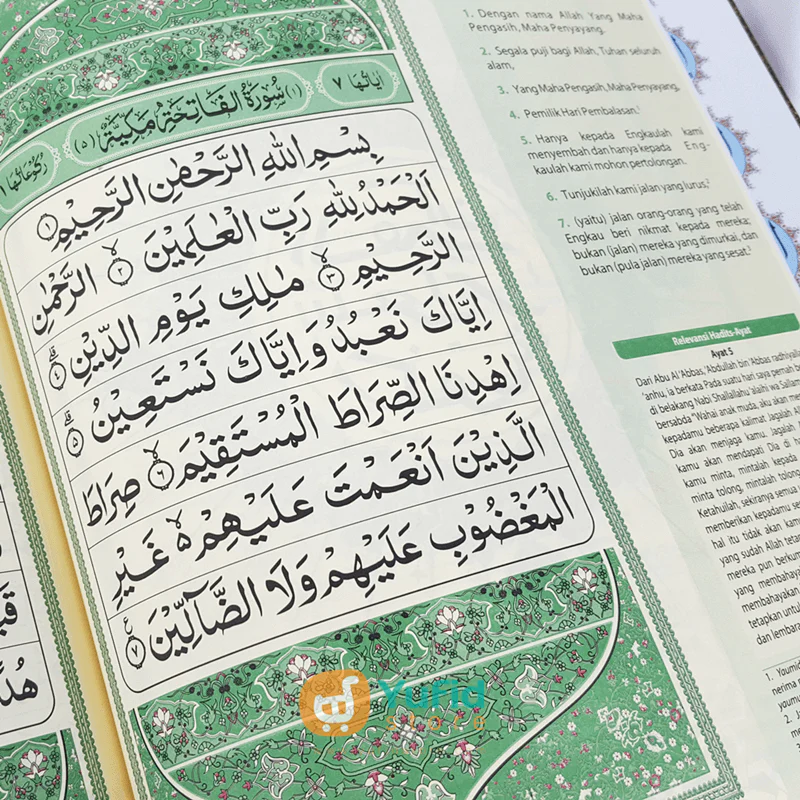 اٰيَاتُهَا ٧
(١) سُوْرَةُ الْفَاتِحَةِ مَكِّيَّةٌ (٥)
رُكُوْعَاتُهَا ١
بِسْمِ اللّٰهِ الرَّحْمٰنِ الرَّحِيْمِ ١
اَلْحَمْدُ لِلّٰهِ رَبِّ الْعٰلَمِيْنَ ٢ الرَّحْمٰنِ
الرَّحِيْمِ ٣ مٰلِكِ يَوْمِ الدِّيْنِ ٤
اِيَّاكَ نَعْبُدُ وَاِيَّاكَ نَسْتَعِيْنُ ٥
اِهْدِنَا الصِّرَاطَ الْمُسْتَقِيْمَ ٦ صِرَاطَ
الَّذِيْنَ اَنْعَمْتَ عَلَيْهِمْ غَيْرِ
الْمَغْضُوْبِ عَلَيْهِمْ وَلَا الضَّآلِّيْنَ ٧
1. Dengan nama Allah Yang Maha
Pengasih, Maha Penyayang.
2. Segala puji bagi Allah, Tuhan seluruh
alam,
3. Yang Maha Pengasih, Maha Penyayang,
4. Pemilik Hari Pembalasan.¹
5. Hanya kepada Engkaulah kami
menyembah dan hanya kepada Eng-
kaulah kami mohon pertolongan.
6. Tunjukilah kami jalan yang lurus,²
7. (yaitu) jalan orang-orang yang telah
Engkau beri nikmat kepada mereka;
bukan (jalan) mereka yang dimurkai, dan
bukan (pula jalan) mereka yang sesat.³
Relevansi Hadits-Ayat
Ayat 5
Dari Abu Al 'Abbas, 'Abdullah bin 'Abbas radhiyall
'anhu, ia berkata Pada suatu hari saya pernah be
di belakang Nabi Shallallahu 'alaihi wa Sallam
bersabda "Wahai anak muda, aku akan me
kepadamu beberapa kalimat Jagalah Al
Dia akan menjaga kamu. Jagalah
kamu akan mendapati Dia di ha
kamu minta, mintalah kepada
minta tolong, mintalah tolong
Ketahuilah, sekiranya semua
memberikan kepadamu se
hal itu tidak akan kamu
yang sudah Allah tetap
mereka pun berkum
yang membahaya
membahayakan
tetapkan untu
dan lembara
1. Youmid
nerima
youmu
2.
3
Yufid
store